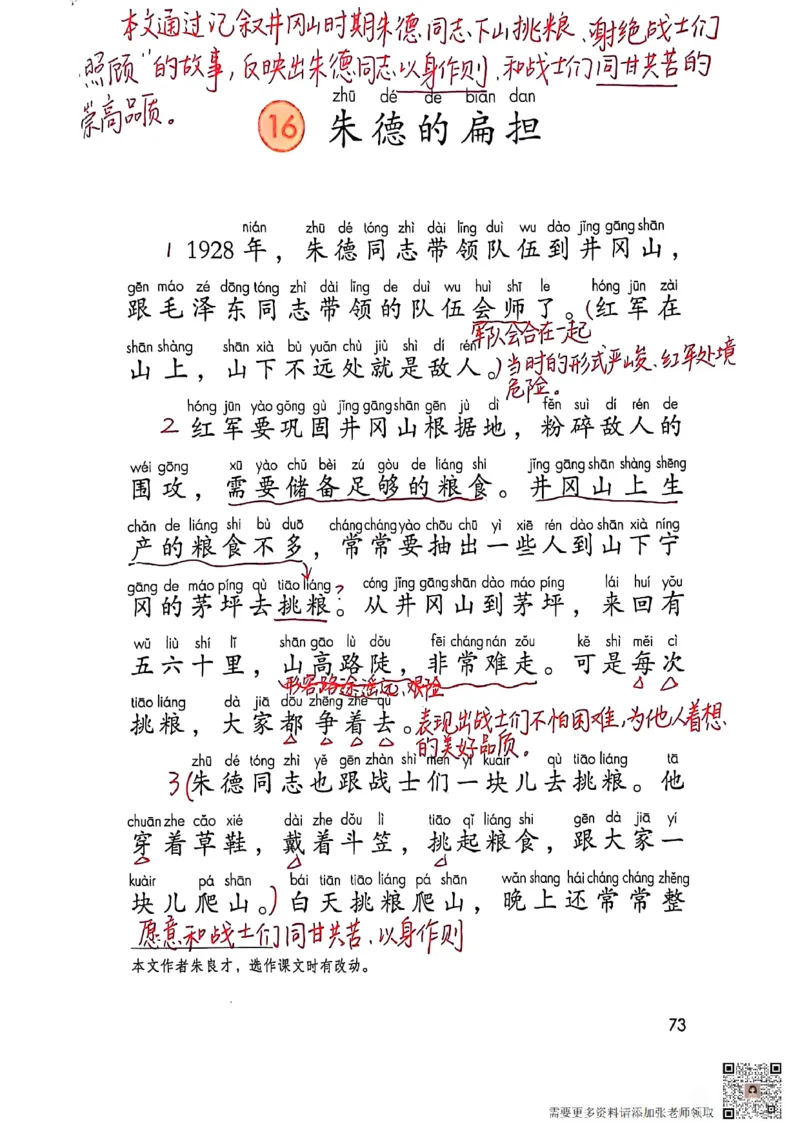 本文通过记叙井冈山时期朱德同志、下山挑粮、谢绝战士们
“照顾”的故事，反映出朱德同志以身作则、和战士们同甘共苦的
崇高品质。
zhū dé de biǎn dan
16 朱德的扁担
nián zhū dé tóng zhì dài lǐng duì wu dào jǐng gāng shān
1 1928年，朱德同志带领队伍到井冈山，
gēn máo zé dōng tóng zhì dài lǐng de duì wu huì shī le hóng jūn zài
跟毛泽东同志带领的队伍会师了。(红军在
军队会合在一起
shān shàng shān xià bù yuǎn chù jiù shì dí rén
山上，山下不远处就是敌人。)当时的形式严峻、红军处境
危险。
hóng jūn yào gǒng gù jǐng gāng shān gēn jù dì fěn suì dí rén de
2 红军要巩固井冈山根据地，粉碎敌人的
wéi gōng xū yào chǔ bèi zú gòu de liáng shi jǐng gāng shān shàng shēng
围攻，需要储备足够的粮食。井冈山上生
chǎn de liáng shi bù duō cháng cháng yào chōu chū yì xiē rén dào shān xià níng
产的粮食不多，常常要抽出一些人到山下宁
gāng de máo píng qù tiāo liáng cóng jǐng gāng shān dào máo píng lái huí yǒu
冈的茅坪去挑粮。从井冈山到茅坪，来回有
wǔ liù shí lǐ shān gāo lù dǒu fēi cháng nán zǒu kě shì měi cì
五六十里，山高路陡，非常难走。可是每次
形容路途遥远、艰险
tiāo liáng dà jiā dōu zhēng zhe qù
挑粮，大家都争着去。表现出战士们不怕困难，为他人着想
的美好品质。
zhū dé tóng zhì yě gēn zhàn shì men yí kuàir qù tiāo liáng tā
3(朱德同志也跟战士们一块儿去挑粮。他
chuān zhe cǎo xié dài zhe dǒu lì tiāo qǐ liáng shi gēn dà jiā yí
穿着草鞋，戴着斗笠，挑起粮食，跟大家一
kuàir pá shān bái tiān tiāo liáng pá shān wǎn shang hái cháng cháng zhěng
块儿爬山。)白天挑粮爬山，晚上还常常整
愿意和战士们同甘共苦、以身作则
本文作者朱良才，选作课文时有改动。
73
需要更多资料请添加张老师领取